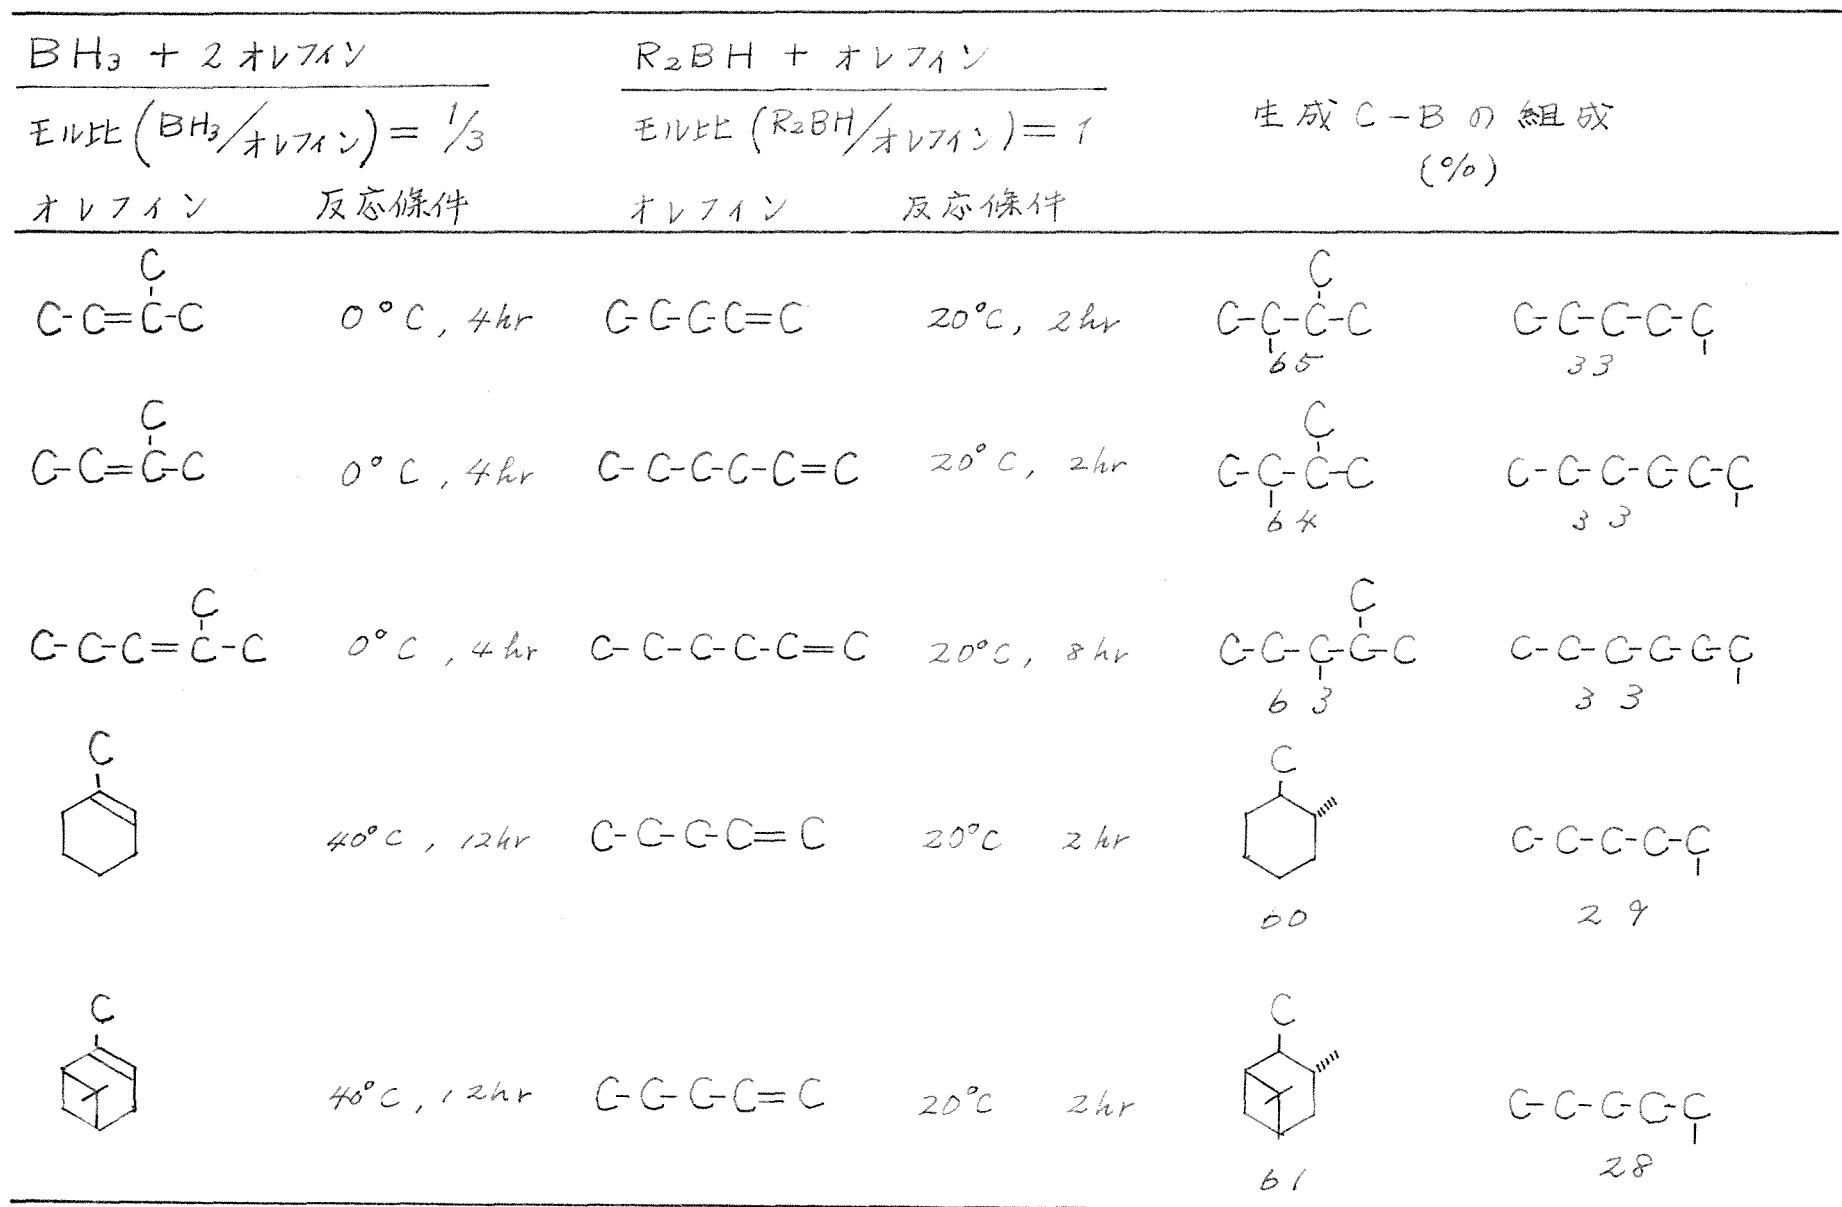 BH₃ + 2 オレフィン
R₂BH + オレフィン
モル比(BH₃/オレフィン)= 1/3
モル比(R₂BH/オレフィン)= 1
生成 C-B の 組成
(%)
オレフィン 反応條件 オレフィン 反応條件
C
C
C-C=C-C 0°C, 4hr C-C-C-C=C 20°C, 2hr C-C-C-C C-C-C-C-C
65 33
C
C
C-C=C-C 0°C, 4hr C-C-C-C-C=C 20°C, 2hr C-C-C-C C-C-C-C-C-C
64 33
C
C
C-C-C=C-C 0°C, 4hr C-C-C-C-C=C 20°C, 8hr C-C-C-C-C C-C-C-C-C-C
63 33
C
C
40°C, 12hr C-C-C-C=C 20°C 2hr C-C-C-C-C
60 29
C
C
40°C, 12hr C-C-C-C=C 20°C 2hr C-C-C-C-C
61 28